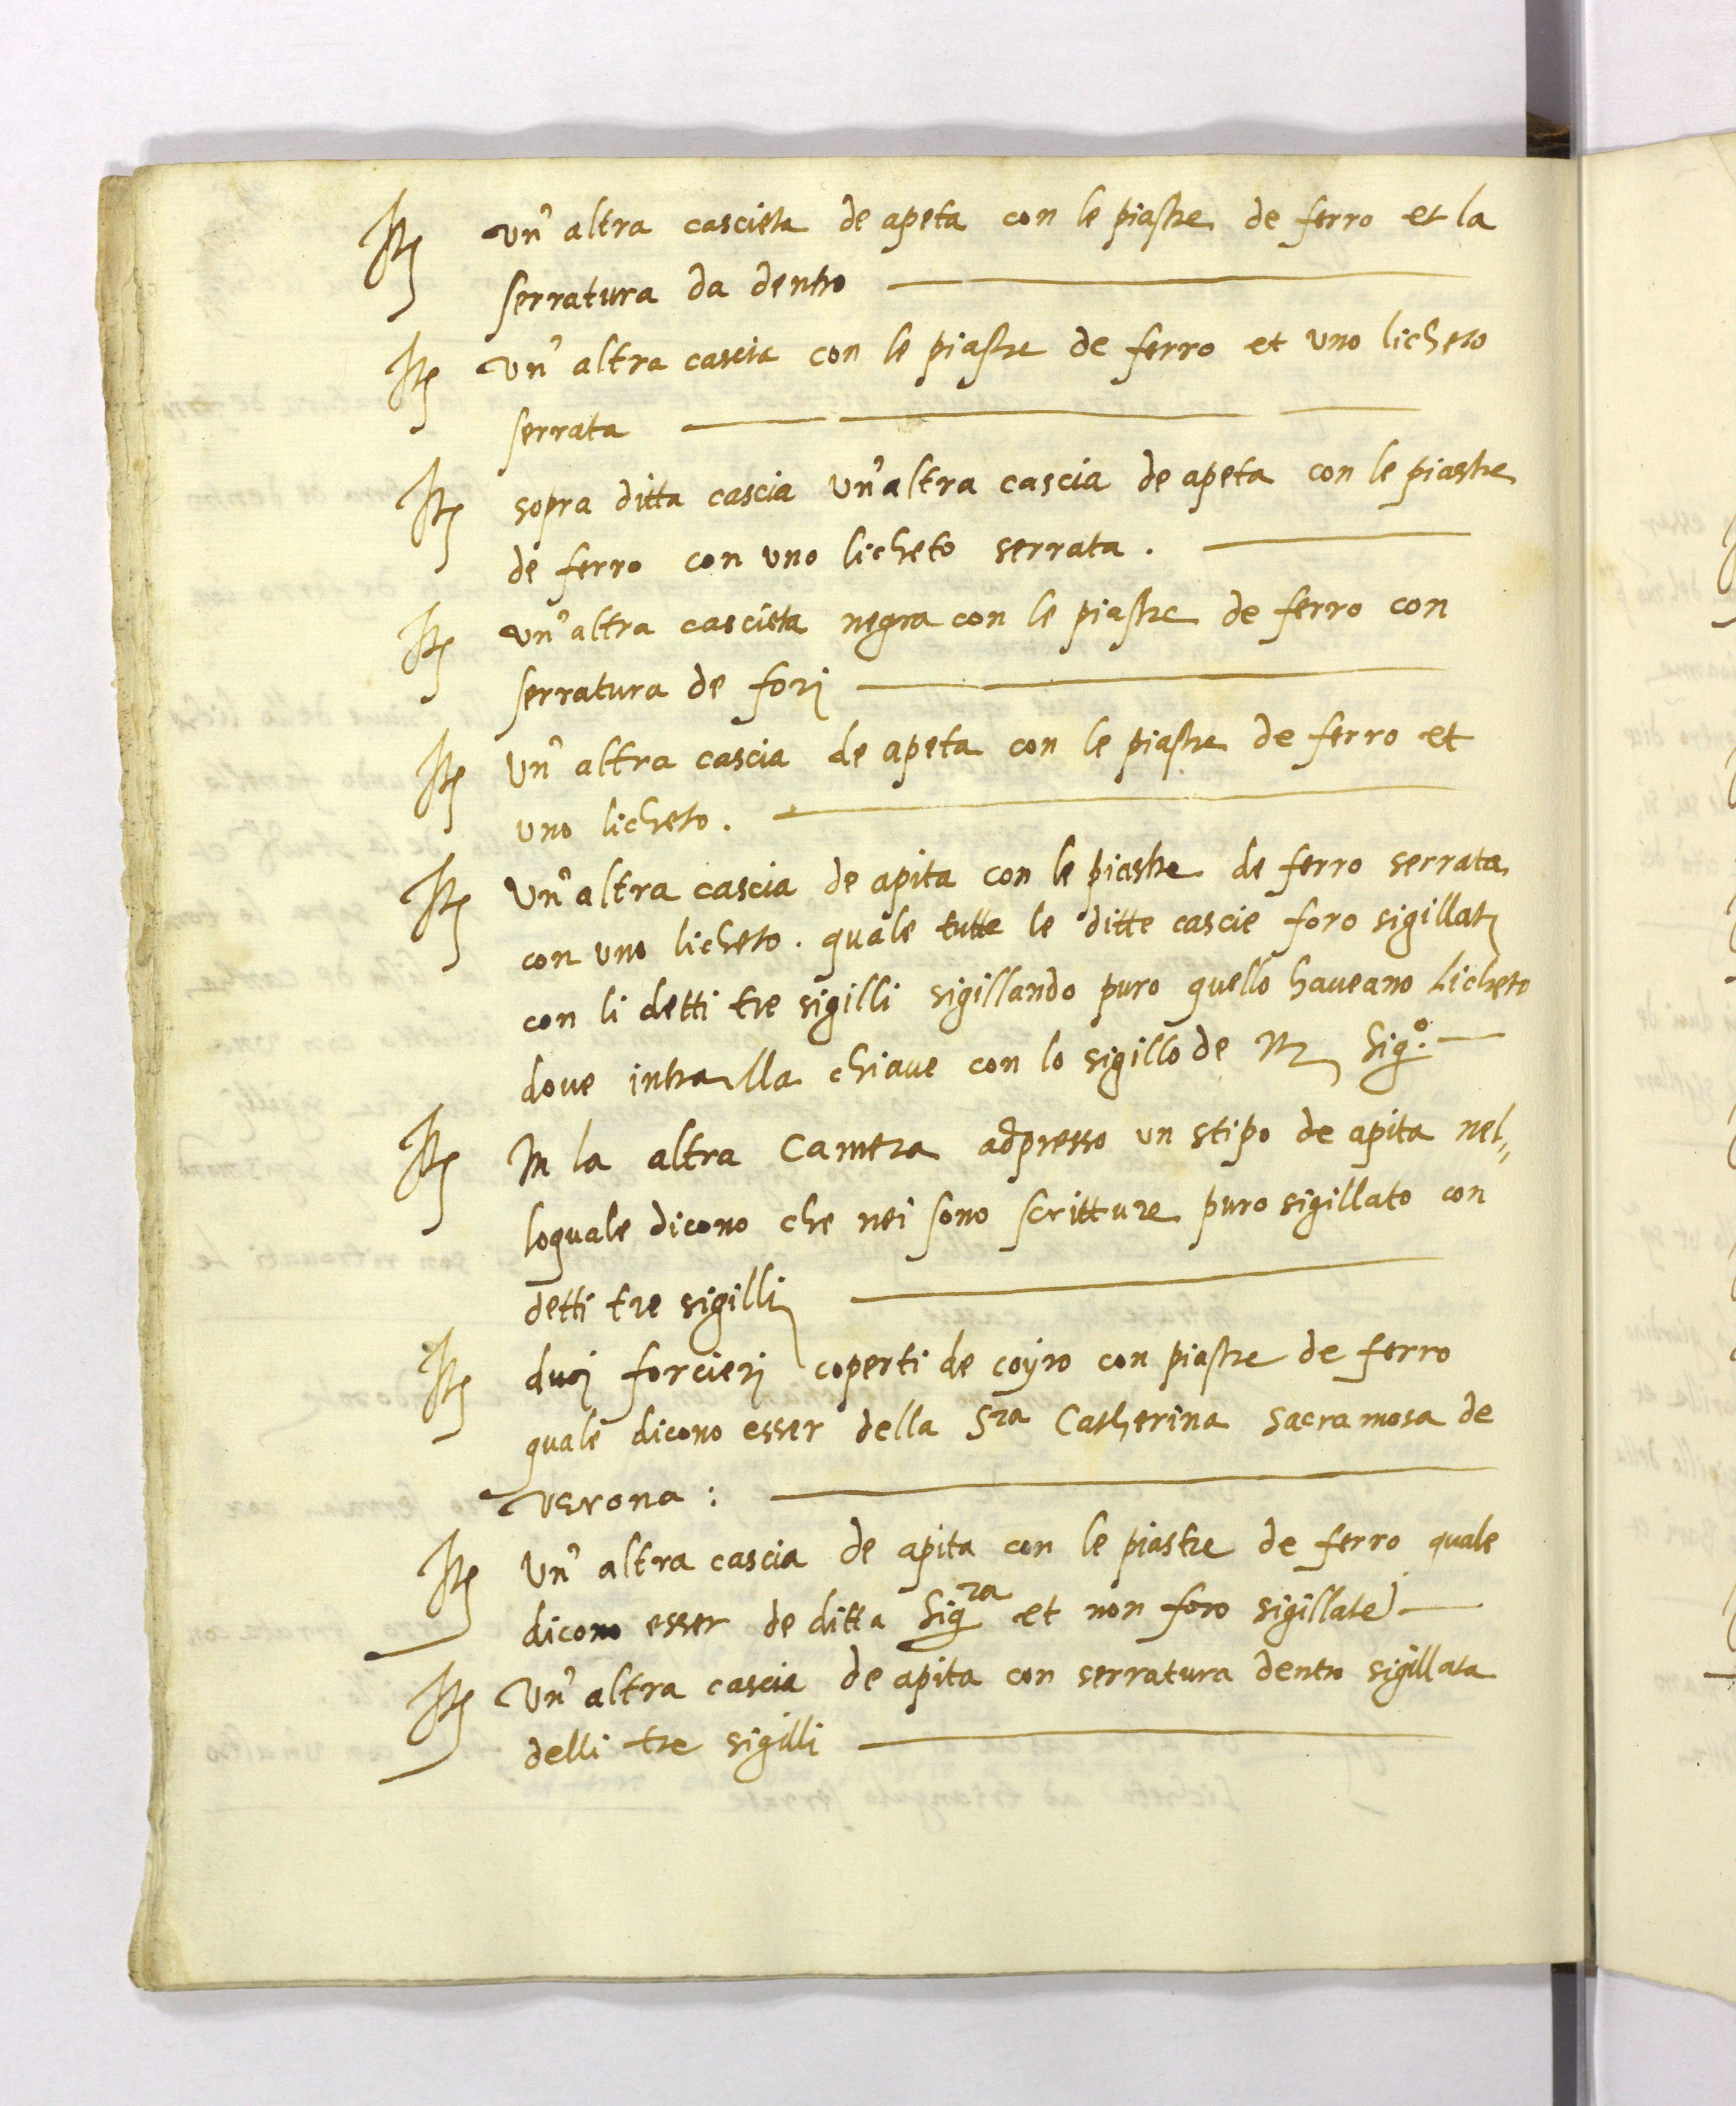 Itē un' altra cascieta de apeta con le piastre de ferro et la
serratura da dentro
Itē un' altra cascia con le piastre de ferro et uno licheto
serrata
Itē sopra ditta cascia un' altra cascia de apeta con le piastre
de ferro con uno licheto serrata.
Itē un' altra cascieta negra con le piastre de ferro con
serratura de forj
Itē un' altra cascia de apeta con le piastre de ferro et
uno licheto.
Itē un' altra cascia de apita con le piastre de ferro serrata
con uno licheto. quale tutte le ditte cascie foro sigillatj
con li detti tre sigilli sigillando puro quello haveano Licheto
dove intra lla chiave con lo sigillo de Sig.º
Itē In la altra Camera adpresso un stipo de apita nel=
loquale dicono che nei sono scritture puro sigillato con
detti tre sigillj
Itē duoj forcierj coperti de coyro con piastre de ferro
quale dicono esser della Sra Catherina Sacramosa de
verona:
Itē un' altra cascia de apita con le piastre de ferro quale
dicono esser de ditta Sigra et non foro sigillate)
Itē un' altra cascia de apita con serratura dentro sigillata
delli tre sigilli